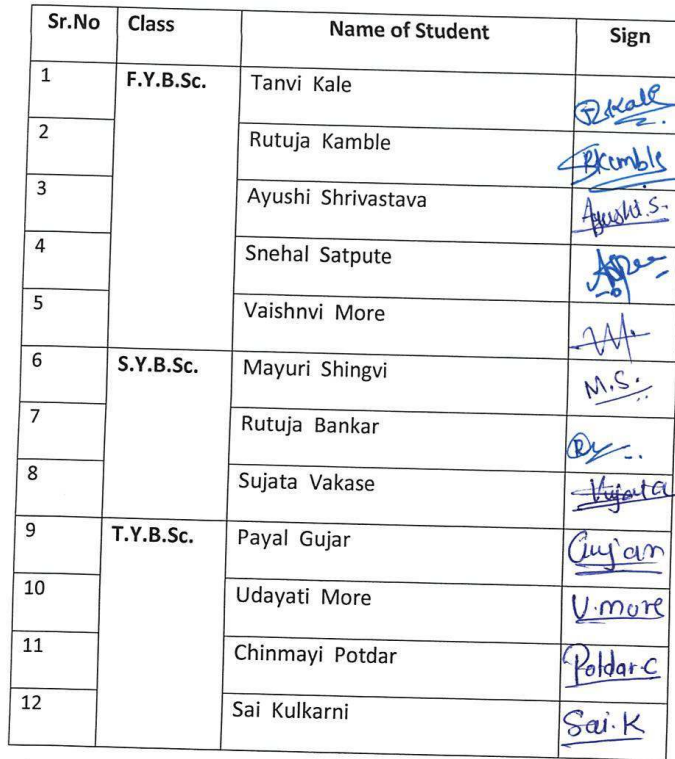 Sr.No Class Name of Student Sign
1 F.Y.B.Sc. Tanvi Kale
2 Rutuja Kamble
3 Ayushi Shrivastava Ayushi.S.
4 Snehal Satpute
5 Vaishnvi More
6 S.Y.B.Sc. Mayuri Shingvi M.S.
7 Rutuja Bankar
8 Sujata Vakase
9 T.Y.B.Sc. Payal Gujar
10 Udayati More U.more
11 Chinmayi Potdar Potdar.C
12 Sai Kulkarni Sai.K